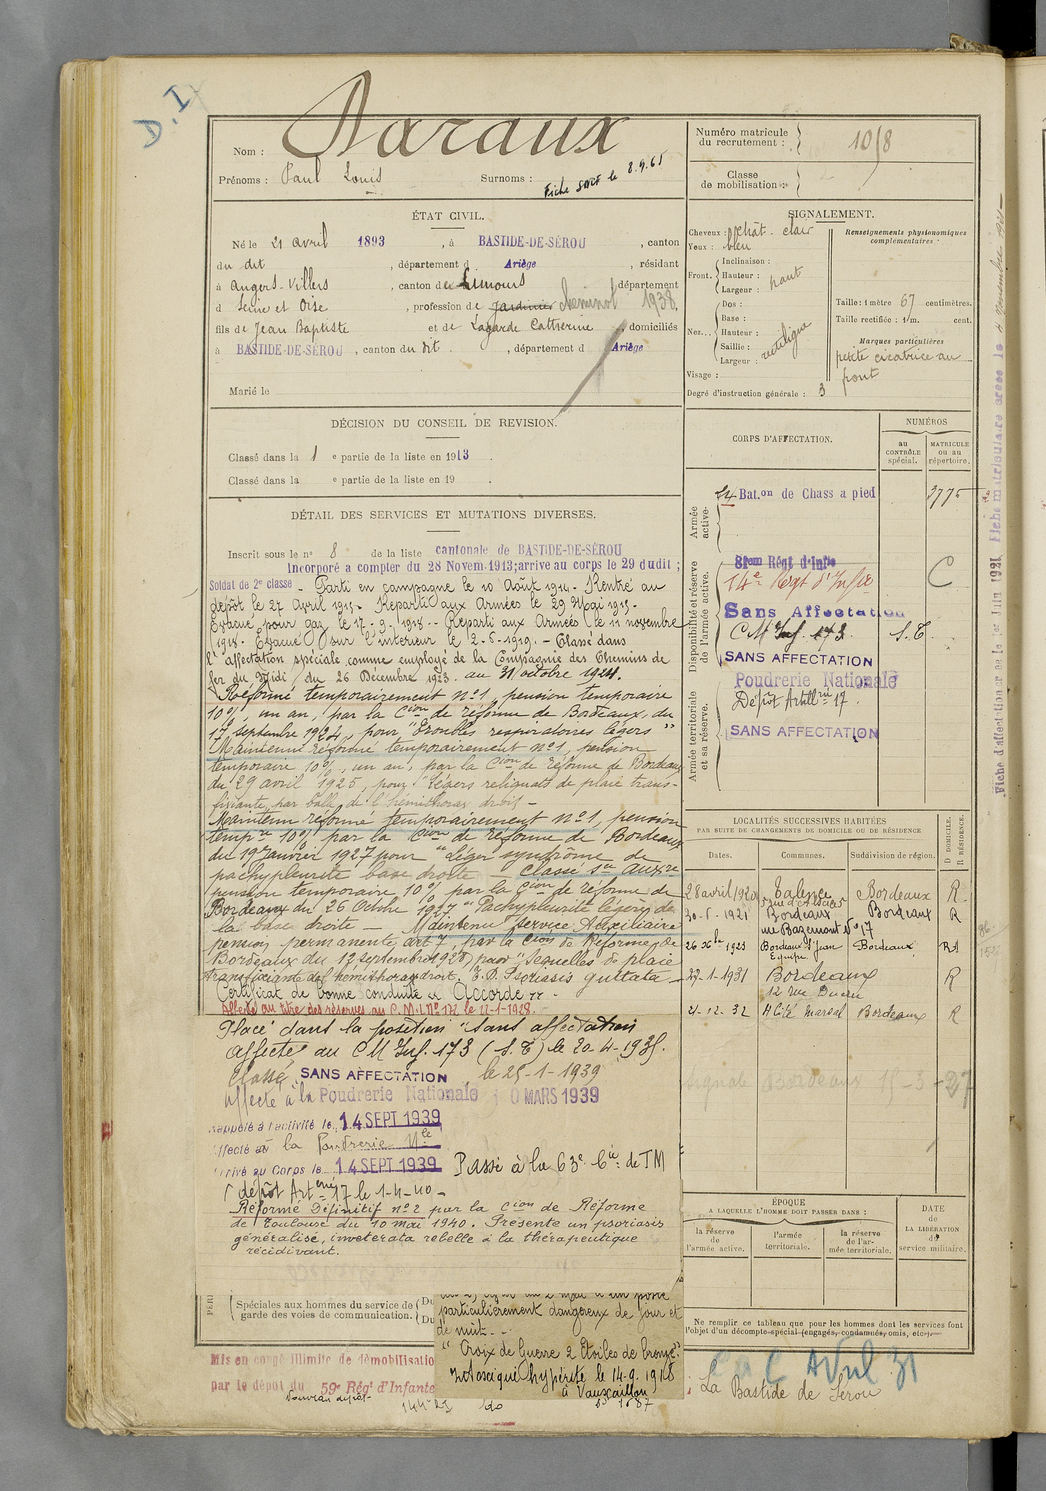 D.I
Nom : Daraux
Prénoms : Paul Louis Surnoms : Fiche SNCF le 8.9.65
Numéro matricule du recrutement : 1058
Classe de mobilisation :
ÉTAT CIVIL.
Né le 21 avril 1893, à BASTIDE-DE-SÉROU, canton
du dit, département d Ariège, résidant
à Angers-Villers, canton de Limours département
d Seine et Oise, profession de jardinier cheminot 1938,
fils de Jean Baptiste et de Lagarde Catherine, domiciliés
à BASTIDE-DE-SÉROU, canton du dit, département d Ariège
Marié le
SIGNALEMENT.
Cheveux : chât. clair
Yeux : bleu
Front. Inclinaison :
Hauteur : haut
Largeur :
Nez... Dos :
Base :
Hauteur : rectiligne
Saillie :
Largeur :
Visage :
Renseignements physionomiques complémentaires :
Taille : 1 mètre 67 centimètres.
Taille rectifiée : 1 m. cent.
Marques particulières
petite cicatrice au
front
Degré d'instruction générale : 3
DÉCISION DU CONSEIL DE REVISION.
Classé dans la 1e partie de la liste en 1913.
Classé dans la e partie de la liste en 19 .
DÉTAIL DES SERVICES ET MUTATIONS DIVERSES.
Inscrit sous le n° 8 de la liste cantonale de BASTIDE-DE-SÉROU
Incorporé a compter du 28 Novem. 1913; arrivé au corps le 29 dudit;
Soldat de 2e classe - Parti en campagne le 10 Août 1914. Rentré au
dépôt le 27 Avril 1915. Reparti aux Armées le 29 Mai 1915.
Évacué pour gaz le 17-9-1918 - Reparti aux Armées le 11 novembre
1918. Évacué sur l'intérieur le 2-5-1919. - Classé dans
l'affectation spéciale comme employé de la Compagnie des Chemins de
fer du Midi, du 26 Décembre 1923. au 31 octobre 1924.
Réformé temporairement n°1, pension temporaire
10%, un an, par la Cion de réforme de Bordeaux, du
17 septembre 1924, pour "Troubles respiratoires légers"
Maintenu réformé temporairement n°1, pension
temporaire 10%, un an, par la Cion de réforme de Bordeaux
du 29 avril 1925, pour "Légers reliquats de plaie trans-
fixiante par balle de l'hémithorax droit -
Maintenu réformé temporairement n°1, pension
tempre 10% par la Cion de réforme de Bordeaux
du 19 Janvier 1927 pour "Léger syndrôme de
pachypleurite base droite - Classé sce auxre
pension temporaire 10% par la Cion de réforme de
Bordeaux du 26 Octobre 1927 "Pachypleurite légère de
la base droite - Maintenu Service Auxiliaire
pension permanente art 7, par la Cion de Réforme de
Bordeaux du 13 septembre 1928 pour "Sequelles de plaie
transfixiante de l'hémithorax droit. Psoriasis guttata -
Certificat de bonne conduite "Accordé"
Affecté au titre des réserves au C.M.I. N° 174 le 12-1-1928.
Placé dans la position "Sans affectation
Affecté au CM Inf. 173 (S.T) le 20-4-1935.
Classé SANS AFFECTATION le 25-1-1939
Affecté à la Poudrerie Nationale 10 MARS 1939
Rappelé à l'activité le 14 SEPT 1939
Affecté à la Poudrerie Nle
Arrivé au Corps le 14 SEPT 1939 Passé à la 63e Cie de TM
dépôt Arterie 17 le 1-4-40 -
Réformé Définitif n°2 par la Cion de Réforme
de Toulouse du 10 mai 1940. Présente un psoriasis
généralisé, inveterata rebelle à la thérapeutique
récidivant.
CORPS D'AFFECTATION.
NUMÉROS
au CONTRÔLE spécial.
MATRICULE ou au répertoire.
Armée active.
24 Bat.on de Chass a pied 3775
Disponibilité et réserve de l'armée active.
81eme Régt d'Infie
14e Régt d'Infie C
Sans Affectation
CM Inf. 173. S.T.
SANS AFFECTATION
Armée territoriale et sa réserve.
Poudrerie Nationale
Dépôt Artillrie 17.
SANS AFFECTATION
LOCALITÉS SUCCESSIVES HABITÉES
PAR SUITE DE CHANGEMENTS DE DOMICILE OU DE RÉSIDENCE
Dates. Communes. Subdivision de région. D DOMICILE. R RÉSIDENCE.
28 avril 1920 Talence Bordeaux R.
30-5-1921 Bordeaux Bordeaux R
rue Bazemont N°17
26 Xbre 1923 Bordeaux St Jean Bordeaux
Equipe.
29-1-1931 Bordeaux R
12 rue
2-12-32 Bordeaux R
Bordeaux 15-3-37
ÉPOQUE
A LAQUELLE L'HOMME DOIT PASSER DANS :
la réserve de l'armée active.
l'armée territoriale.
la réserve de l'armée territoriale.
DATE de LA LIBÉRATION du service militaire.
Spéciales aux hommes du service de garde des voies de communication.
particulièrement dangereux de jour et
de nuit. -
"Croix de Guerre 2 Etoiles de bronze"
Intoxiqué hypérite le 14-9-1918
à Vauxaillon
Ne remplir ce tableau que pour les hommes dont les services font
l'objet d'un décompte spécial (engagés, condamnés, omis, etc.)
Mis en congé illimité de démobilisatio
par le dépôt du 59e Régt d'Infante
Avril 31
La Bastide de Serou